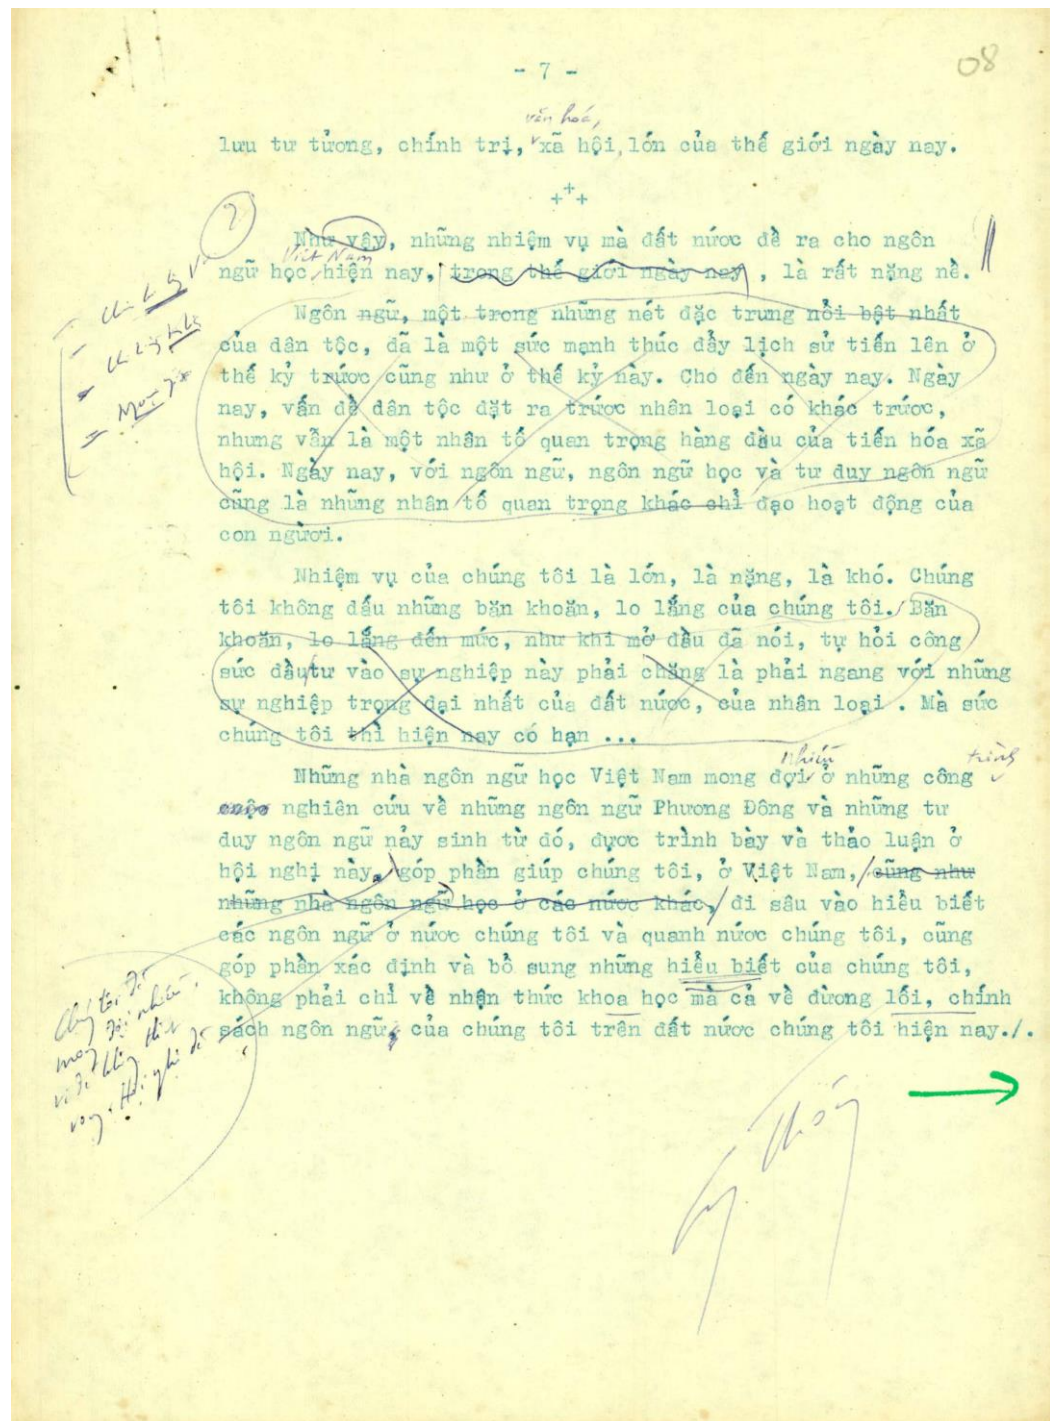 - 7 -
08
văn hóa,
lưu tư tưởng, chính trị, xã hội, lớn của thế giới ngày nay.
+++
Như vậy, những nhiệm vụ mà đất nước đề ra cho ngôn
Việt Nam
ngữ học, hiện nay, trong thế giới ngày nay, là rất nặng nề.
Ngôn ngữ, một trong những nét đặc trưng nổi bật nhất
của dân tộc, đã là một sức mạnh thúc đẩy lịch sử tiến lên ở
thế kỷ trước cũng như ở thế kỷ này. Cho đến ngày nay. Ngày
nay, vấn đề dân tộc đặt ra trước nhân loại có khác trước,
nhưng vẫn là một nhân tố quan trọng hàng đầu của tiến hóa xã
hội. Ngày nay, với ngôn ngữ, ngôn ngữ học và tư duy ngôn ngữ
cũng là những nhân tố quan trọng khác chỉ đạo hoạt động của
con người.
Nhiệm vụ của chúng tôi là lớn, là nặng, là khó. Chúng
tôi không dấu những băn khoăn, lo lắng của chúng tôi. Băn
khoăn, lo lắng đến mức, như khi mở đầu đã nói, tự hỏi công
sức đầu tư vào sự nghiệp này phải chăng là phải ngang với những
sự nghiệp trọng đại nhất của đất nước, của nhân loại . Mà sức
chúng tôi thì hiện nay có hạn ...
nhiều trình
Những nhà ngôn ngữ học Việt Nam mong đợi ở những công
nghiên cứu về những ngôn ngữ Phương Đông và những tư
duy ngôn ngữ nảy sinh từ đó, được trình bày và thảo luận ở
hội nghị này, góp phần giúp chúng tôi, ở Việt Nam, cũng như
những nhà ngôn ngữ học ở các nước khác, đi sâu vào hiểu biết
các ngôn ngữ ở nước chúng tôi và quanh nước chúng tôi, cũng
góp phần xác định và bổ sung những hiểu biết của chúng tôi,
không phải chỉ về nhận thức khoa học mà cả về đường lối, chính
sách ngôn ngữ, của chúng tôi trên đất nước chúng tôi hiện nay./.
Chúng tôi đã
mong đợi nhiều,